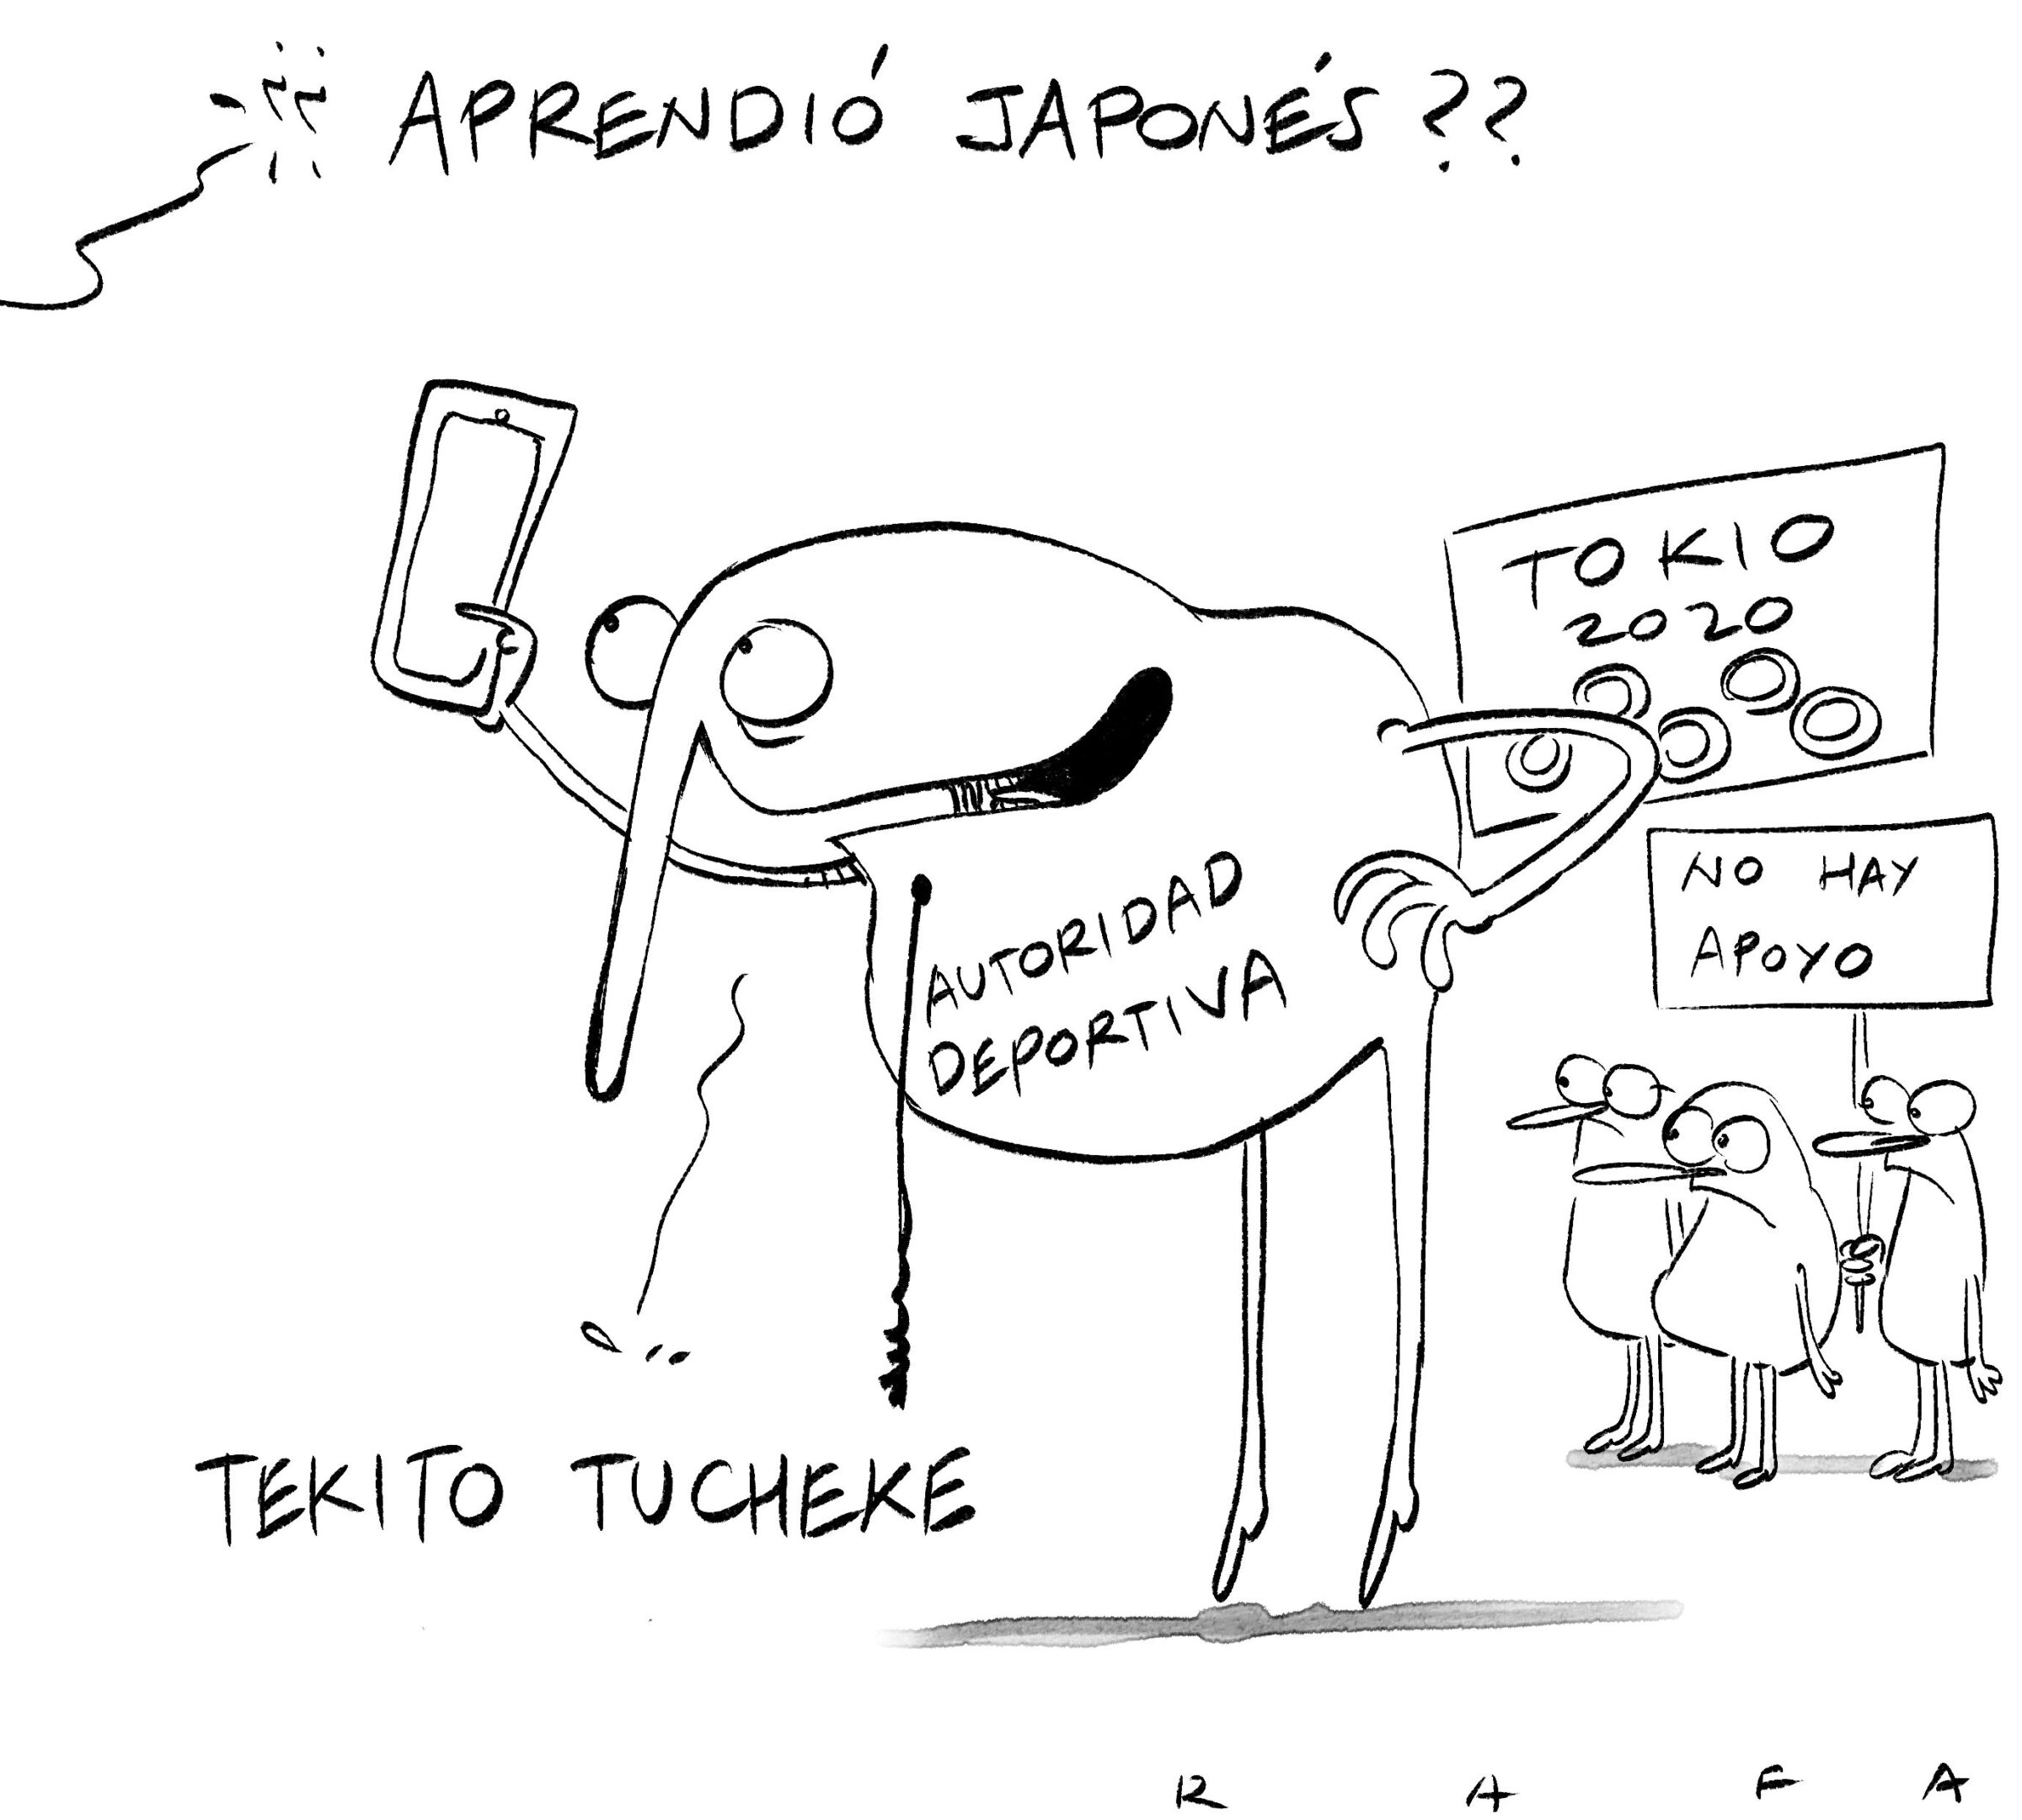 ¿¿ APRENDIÓ JAPONÉS ??
TOKIO
2020
NO HAY
APOYO
AUTORIDAD
DEPORTIVA
TEKITO TUCHEKE
R A F A